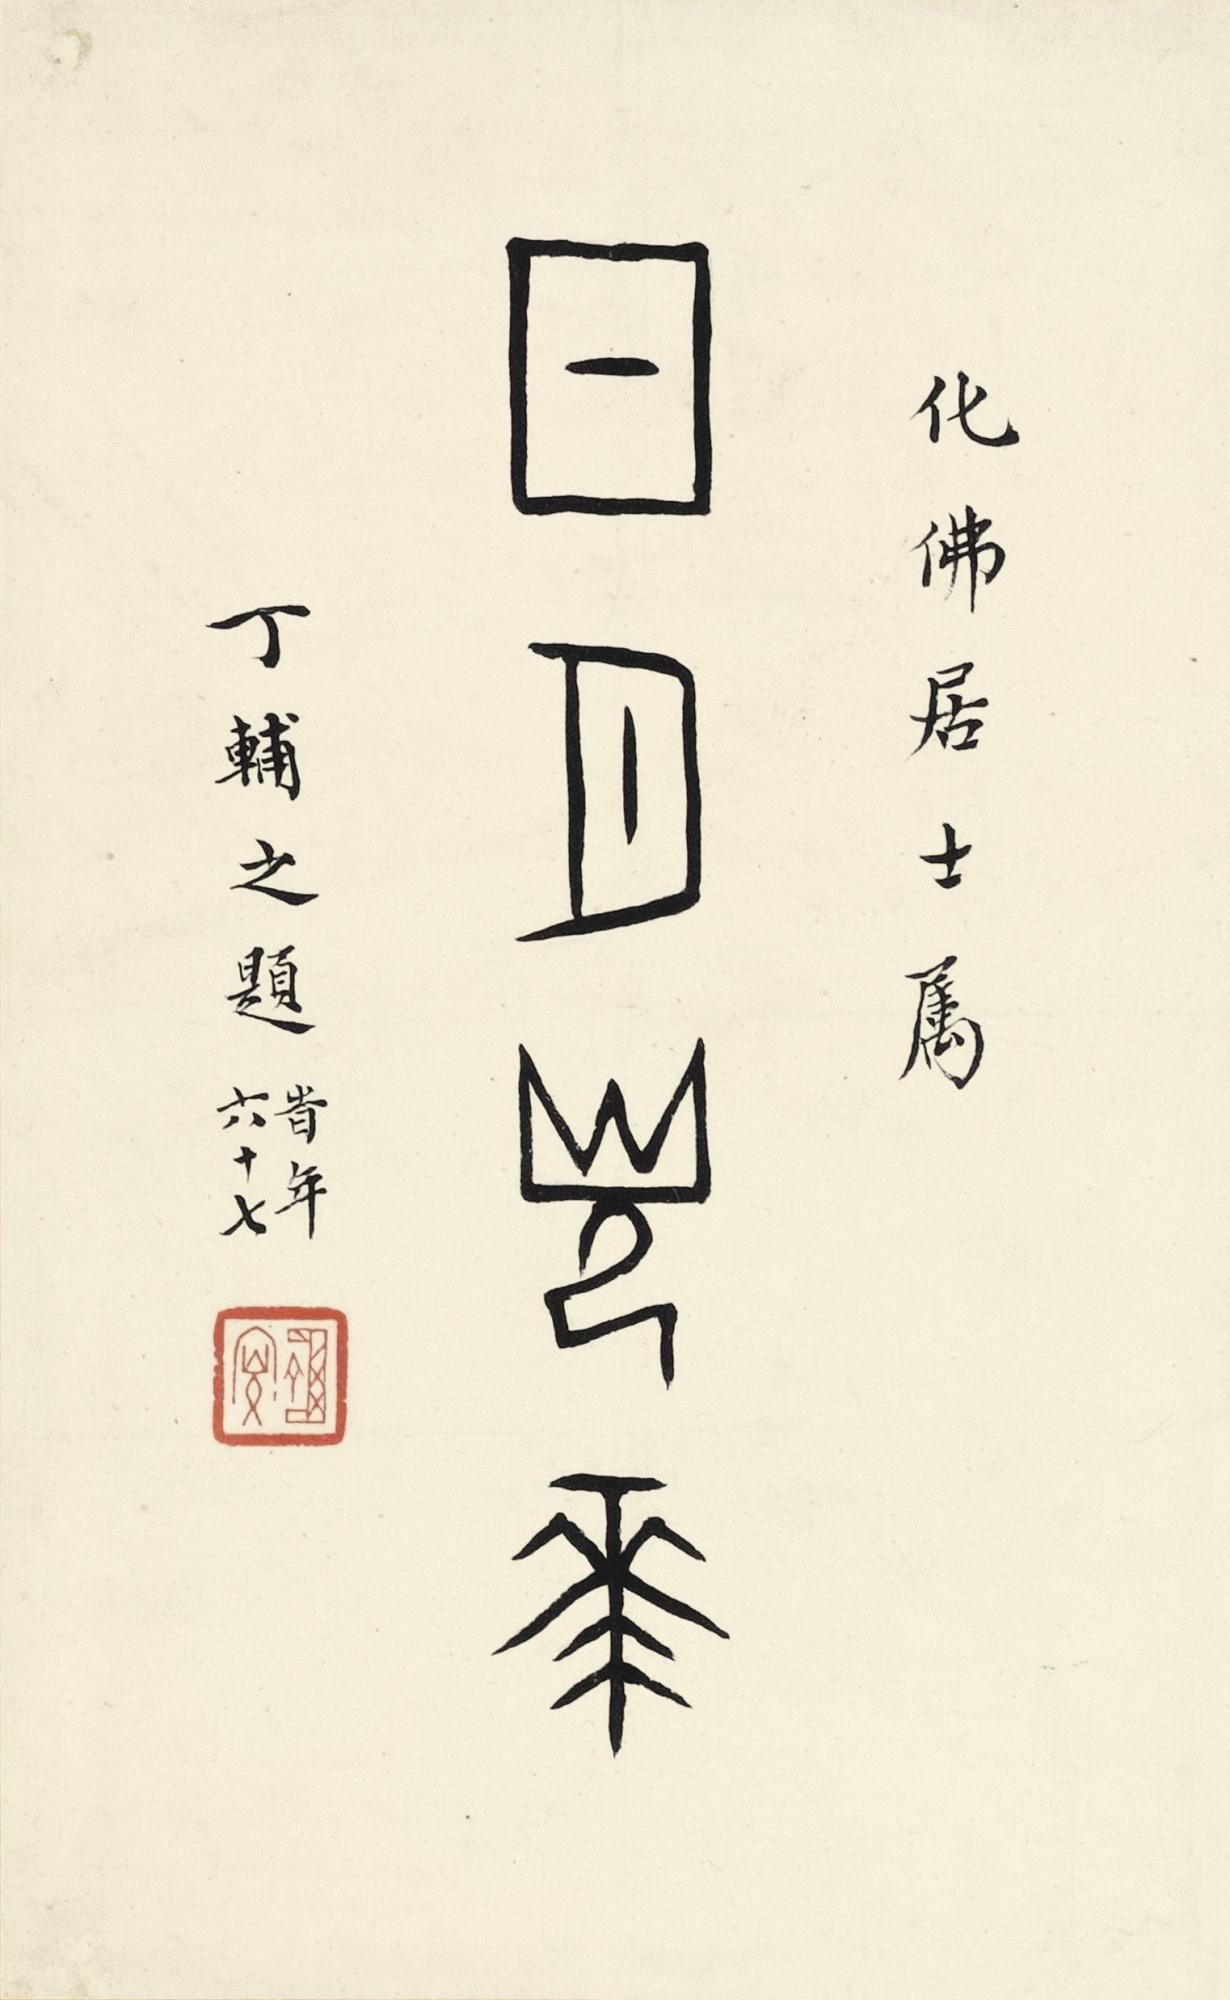 化佛居士属
日月光華
丁輔之題
旹年
六十七